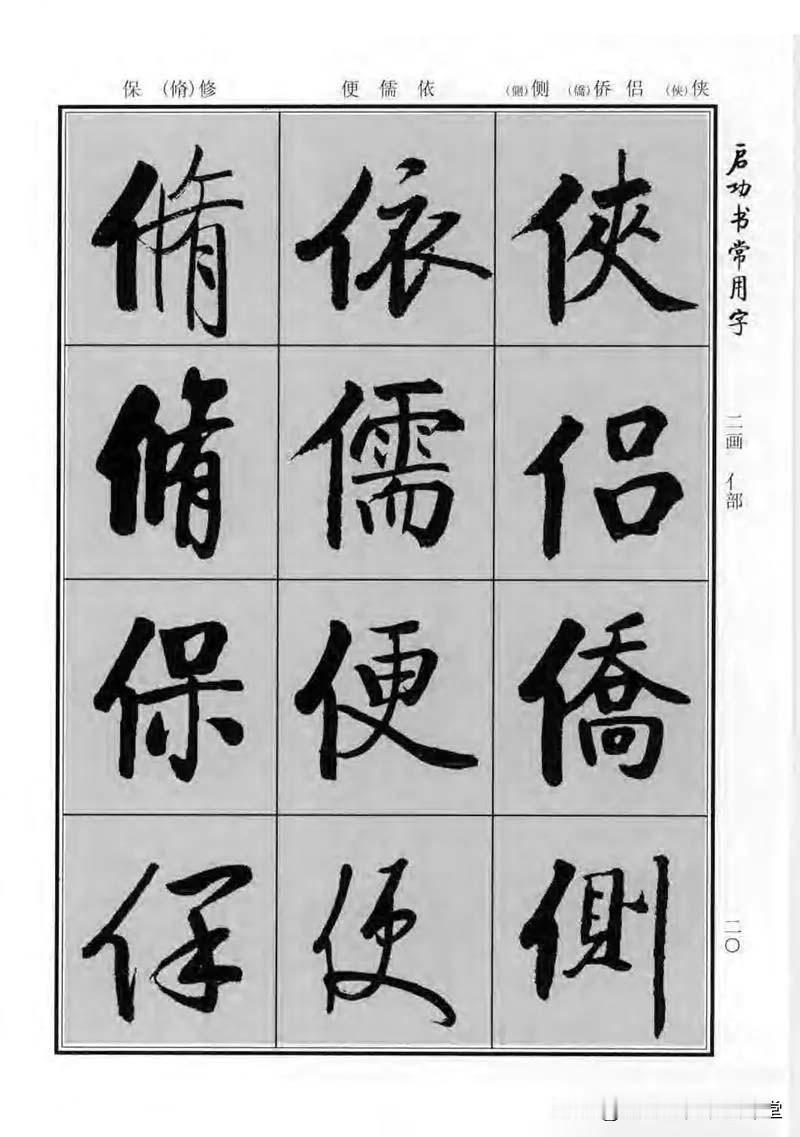 侠(俠) 侣 侨(僑) 侧(側)
依 儒 便
修(脩) 保
启功书常用字
二画 亻部
二〇
俠
侣
僑
側
依
儒
便
便
脩
脩
保
保